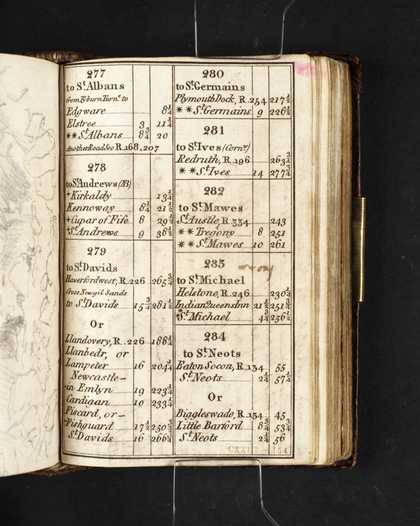 277
to St. Albans
from Tyburn Turn. to
Edgware 8¼
Elstree 3 11¼
** St. Albans 8¾ 20
Another Road See R. 168, 207
278
to St. Andrews (NB)
+ Kirkaldy 13¼
Kennoway 8¼ 21½
+ Cupar of Fife 8 29½
+ St. Andrews 9 38½
279
to St. Davids
Haverfordwest, R. 226 265¾
Cross Newgil Sands
to St. Davids 15¾ 281½
Or
Llandovery, R. 226 188¼
Llanbedr, or
Lampeter 16 204¼
Newcastle-
in Emlyn 19 223¼
Cardigan 10 233¼
Fiscard, or-
Fishguard 17¼ 250½
St. Davids 16 266½
280
to St. Germains
Plymouth Dock, R. 254 217¼
** St. Germains 9 226¼
281
to St. Ives (Cornl.)
Redruth, R. 196 263¼
** St. Ives 14 277¼
282
to St. Mawes
St. Austle, R. 334 243
** Tregony 8 251
** St. Mawes 10 261
283
to St. Michael
Helstone, R. 246 230¼
Indian Queens Inn 21½ 251¾
St. Michael 4¾ 256½
284
to St. Neots
Eaton Socon, R. 134 55
St. Neots 2¼ 57¼
Or
Biggleswade, R. 134 45
Little Barford 8¼ 53¼
St. Neots 2¾ 56